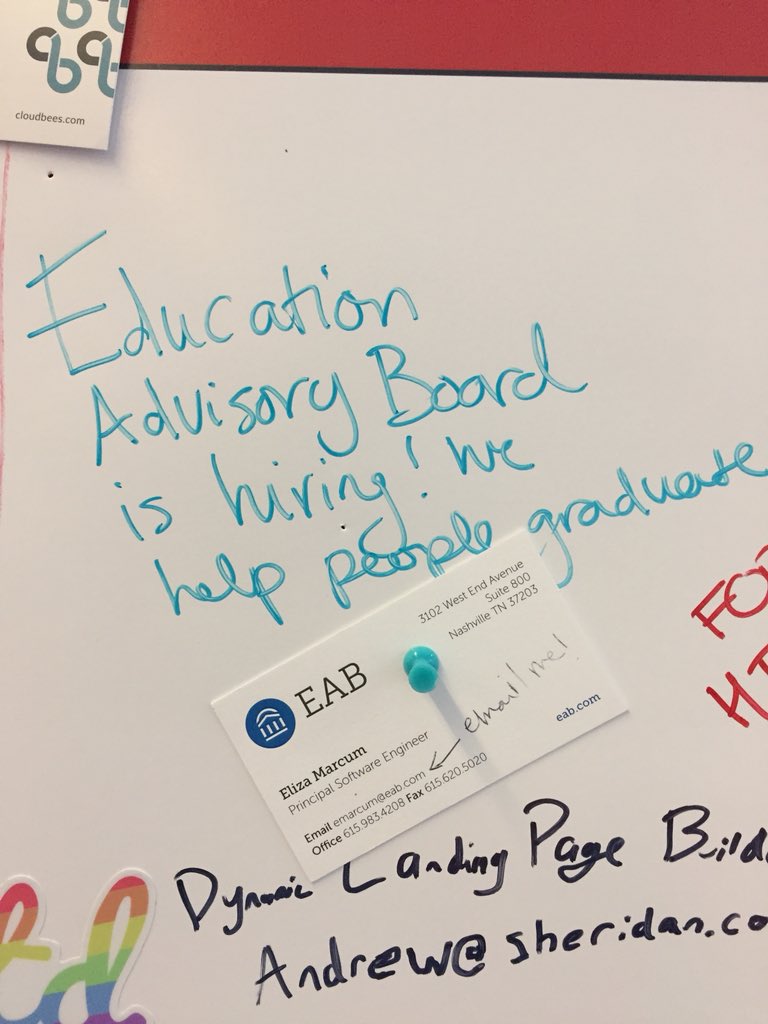 cloudbees.com
Education
Advisory Board
is hiring! We
help people graduate
3102 West End Avenue
Suite 800
Nashville TN 37203
EAB
email me!
eab.com
Eliza Marcum
Principal Software Engineer
Email emarcum@eab.com
Office 615.983.4208 Fax 615.620.5020
Dynamic Landing Page Build
Andrew@sheridan.co